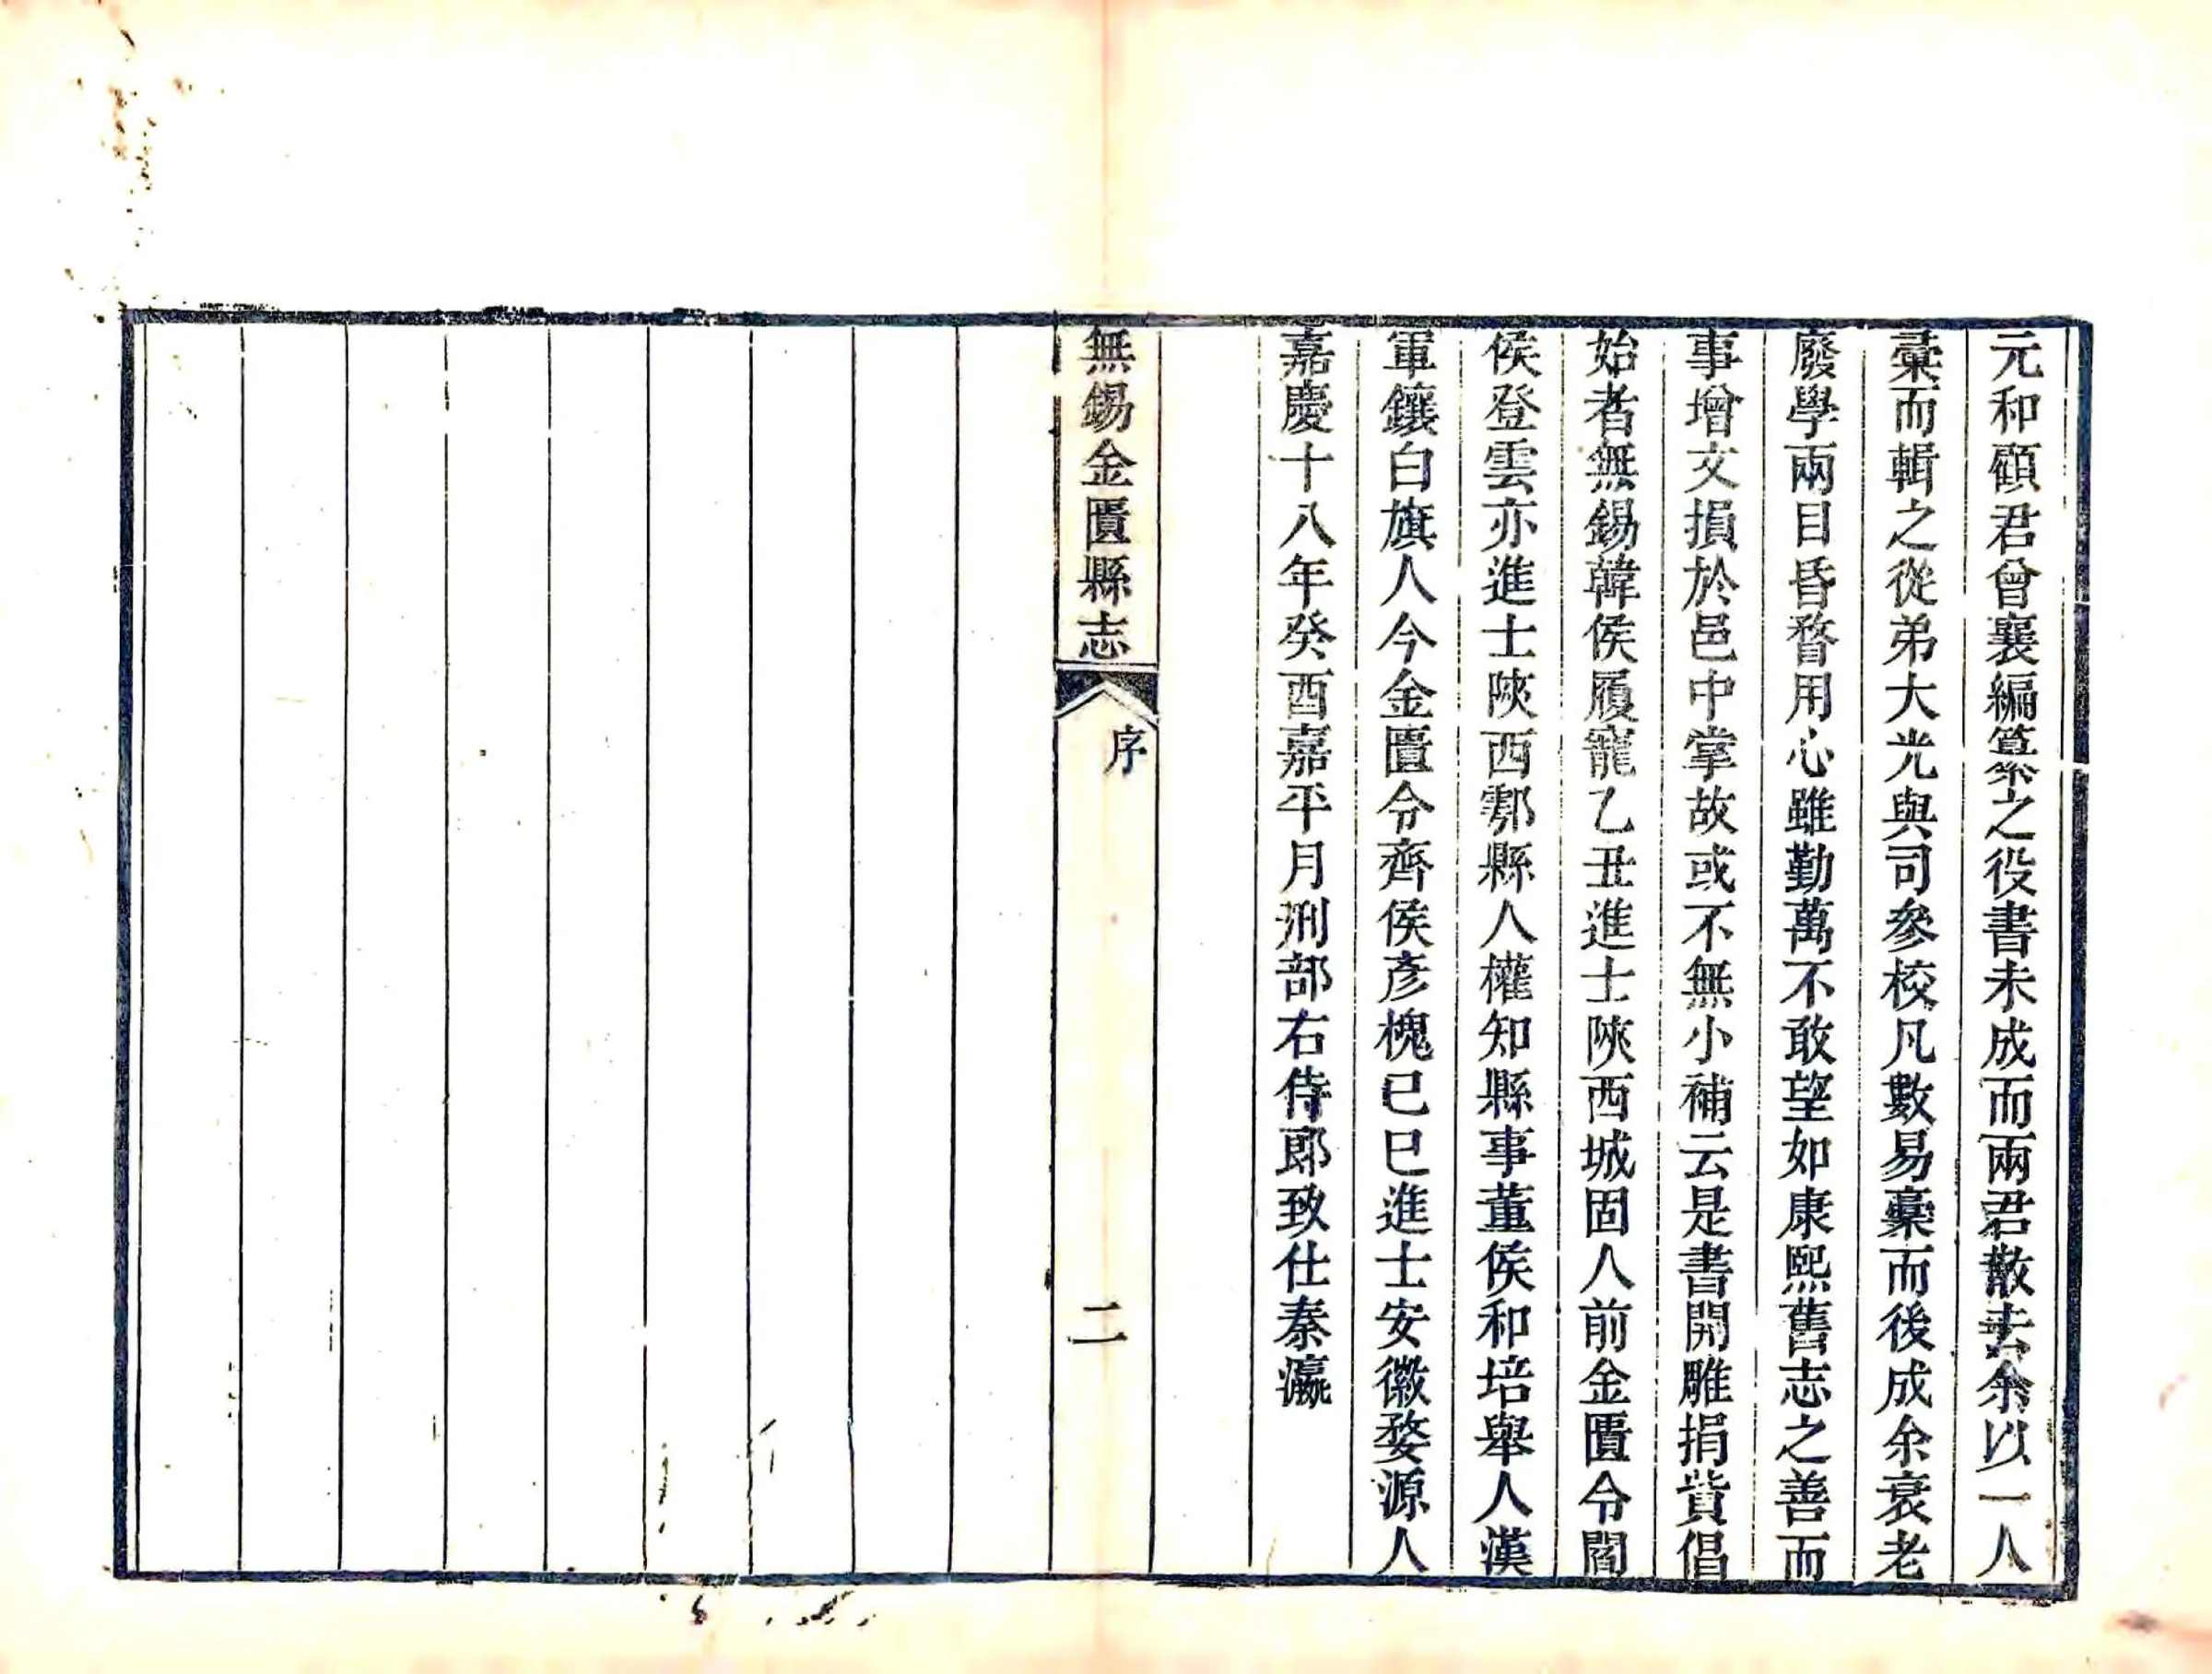 元和顧君曾襄編纂之役書未成而兩君散去余以一人
彙而輯之從弟大光與司參校凡數易藁而後成余衰老
廢學兩目昏瞀用心雖勤萬不敢望如康熙舊志之善而
事增文損於邑中掌故或不無小補云是書開雕捐貲倡
始者無錫韓侯履寵乙丑進士陝西城固人前金匱令閻
侯登雲亦進士陝西鄠縣人權知縣事董侯和培舉人漢
軍鑲白旗人今金匱令齊侯彥槐己巳進士安徽婺源人
嘉慶十八年癸酉嘉平月刑部右侍郎致仕秦瀛
無錫金匱縣志
序
二